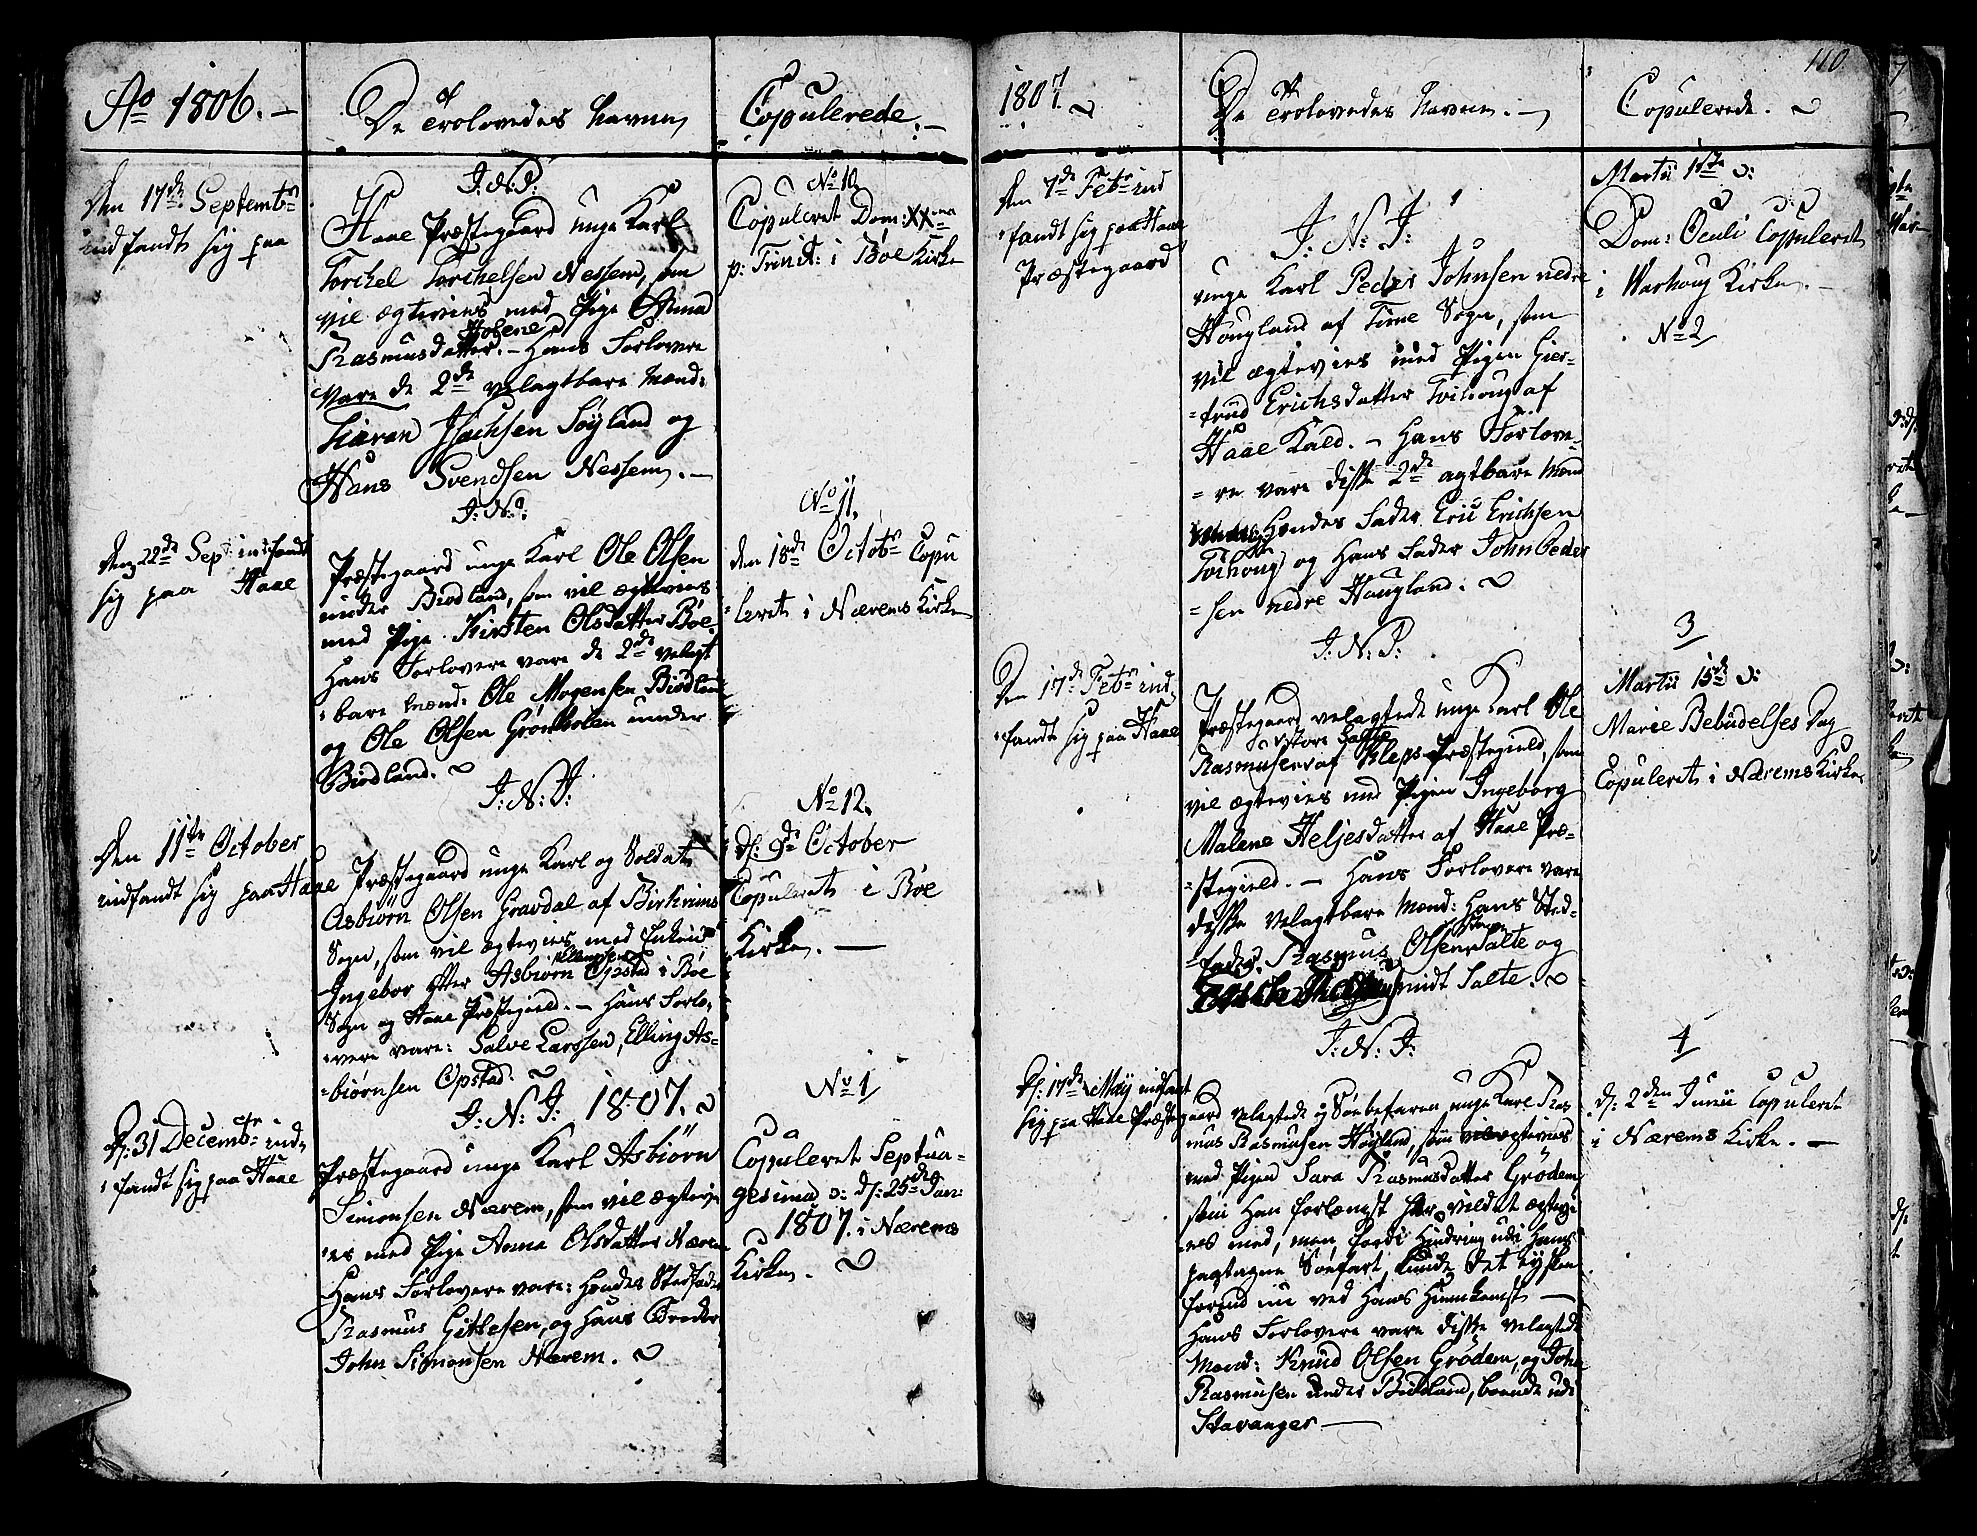 Ao 1806. –
De Trolovedes Navne
Copulerede. –
Den 17de Septembr
indfandt sig paa
J: N: J:
Haae Præstegaard unge Karl
Torckel Torckelsen Nessem, som
vil ægtevies med Pige Anna
Rasmusdatter. – Hans Forlovere
vare de 2de velagtbare Mænd:
Isachsen Söyland og
Hans Svendsen Nessem. –
No 10
Copuleret Dom: XXma
p: Trinit: i Böe Kirke
J: N: J:
Den 22de Sept indfandt
sig paa Haae
Præstegaard unge Karl Ole Olsen
under Biodland, som vil ægtevies
med Pige Kirsten Olsdatter Böe
Hans Forlovere vare de 2de velagt
bare Mænd: Ole Mogensen Biodland
og Ole Olsen under
Biodland.
No 11.
den 18de Octobr Copu
leret i Nærems Kirke
J: N: J:
Den 11te October
indfandt sig paa Haae
Præstegaard unge Karl og Soldat
Asbiörn Olsen Gravdal af Birkrims
Sogn, som vil ægtevies med Enken
Ingebor efter Asbiörn Opstad i Böe
Sogn og Haae Præstegield. – Hans Forlo-
vere vare: Salve Larssen, Elling As-
biörnsen Opstad.
No 12.
d: 9de October
Copuleret i Böe
Kirke. –
J: N: J: 1807.
D: 31 Decembr ind-
fandt sig paa Haae
Præstegaard unge Karl Asbiörn
Simonsen Nærem, som vil ægtevi
es med Pige Anna Olsdatter Nærem
Hans Forlovere vare: Hendes Stedfader
Rasmus Gitlesen, og Hans Broder
John Simonsen Nærem.
No 1
Copuleret Septua-
gesima o: d: 25de Janr
1807. i Nærems
Kirke.
1807.
De Trolovedes Navne. –
Copulerede.
110
Den 7de Febr ind
fandt sig paa Haae
Præstegaard
J: N: J:
unge Karl Peder Johnsen nedre
Hougland af Time Sogn, som
vil ægtevies med Pigen Gier-
trud Erichsdatter Tvihoug af
Haae Kald. – Hans Forlove-
re vare disse 2de agtbare Mænd
Hendes Fader Eric Erichsen
Tvihoug og Hans Fader John Peder
sen nedre Hougland.
Martii 1ste o:
Dom: Oculi Copuleret
i Warhoug Kirke. –
No 2
J: N: J:
Den 17de Febr ind
fandt sig paa Haae
Præstegaard velagtede unge Karl Ole
store Salte
Rasmusen af Kleps Præstegield, som
vil ægtevies med Pigen Ingeborg
Malene Heljesdatter af Haae Præ-
stegield. – Hans Forlovere vare
disse velagtbare Mænd: Hans Sted-
fader Rasmus Olsen Salte og
midt Salte.
3
Martii 15de o:
Mariæ Bebudelses Dag
Copuleret i Nærems Kirke
J: N: J:
D: 17de May indfandt
sig paa Haae Præstegaard velagtede og Söebefaren unge Karl Ras
mus Rasmusen Höyland, som vil ægtevies
med Pigen Sara Rasmusdatter Grödem,
som Han forlængst har vildet ægtevi
es med, men fordi Hindring udi Hans
paatagne Söefart, kunde det ey skee
forend nu ved Hans Hiemkomst –
Hans Forlovere vare disse velagtede
Mænd: Knud Olsen Grödem, og John
Rasmusen under Birkland, boende udi
Stavanger –
4
d: 2den Junii Copuleret
i Nærems Kirke. –